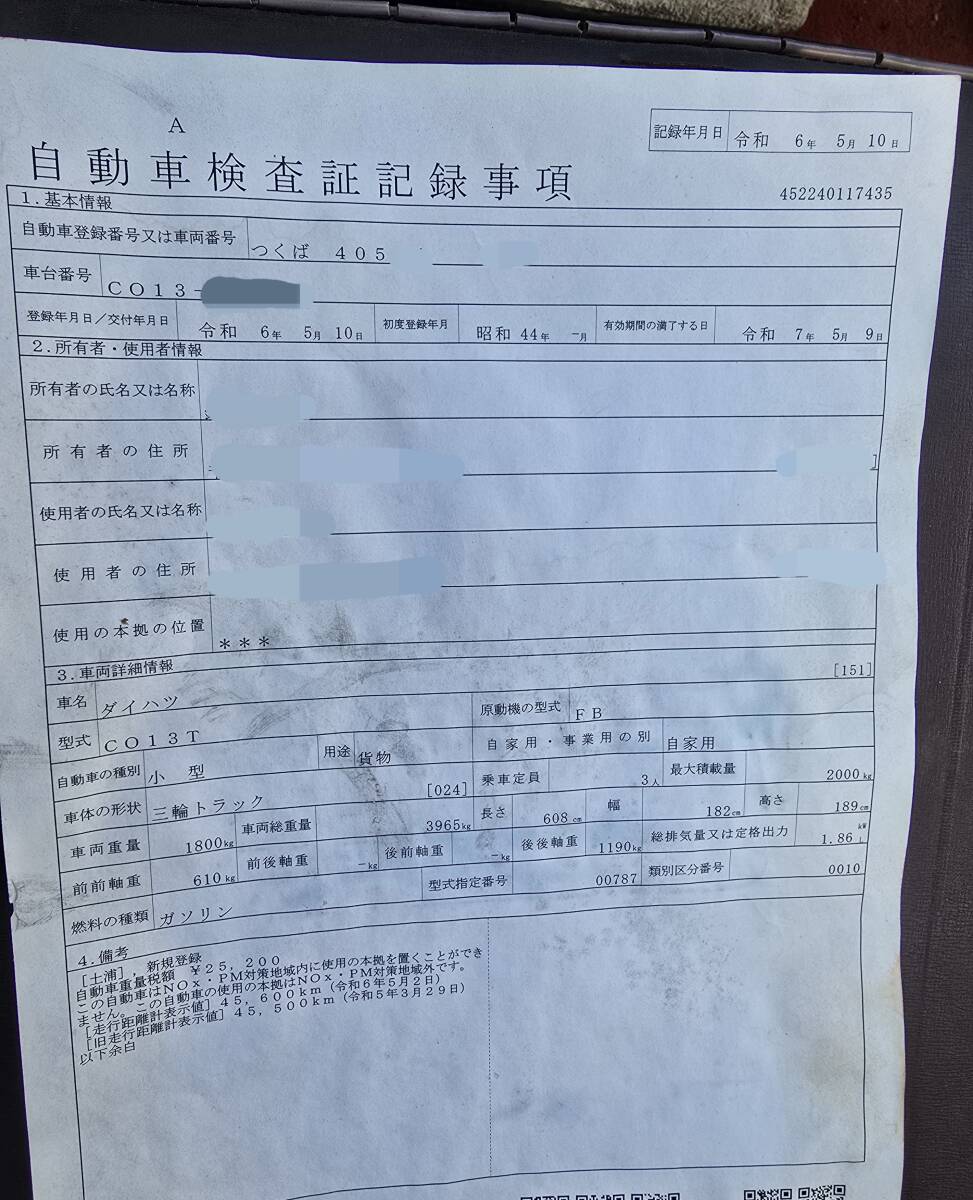 A
記録年月日 令和 6年 5月 10日
自動車検査証記録事項
452240117435
1.基本情報
自動車登録番号又は車両番号 つくば 405
車台番号 CO13-
登録年月日/交付年月日 令和 6年 5月 10日 初度登録年月 昭和 44年 -月 有効期間の満了する日 令和 7年 5月 9日
2.所有者・使用者情報
所有者の氏名又は名称
所有者の住所
使用者の氏名又は名称
使用者の住所
使用の本拠の位置 ***
3.車両詳細情報
車名 ダイハツ [151]
型式 CO13T 原動機の型式 FB
自動車の種別 小型 用途 貨物 自家用・事業用の別 自家用
車体の形状 三輪トラック [024] 乗車定員 3人 最大積載量 2000kg
車両重量 1800kg 車両総重量 3965kg 長さ 608cm 幅 182cm 高さ 189cm
前前軸重 610kg 前後軸重 -kg 後前軸重 -kg 後後軸重 1190kg 総排気量又は定格出力 1.86 kW L
燃料の種類 ガソリン 型式指定番号 00787 類別区分番号 0010
4.備考
[土浦],新規登録
自動車重量税額 ¥25,200
この自動車はNOx・PM対策地域内に使用の本拠を置くことができ
ません。この自動車の使用の本拠はNOx・PM対策地域外です。
[走行距離計表示値]45,600km(令和6年5月2日)
[旧走行距離計表示値]45,500km(令和5年3月29日)
以下余白